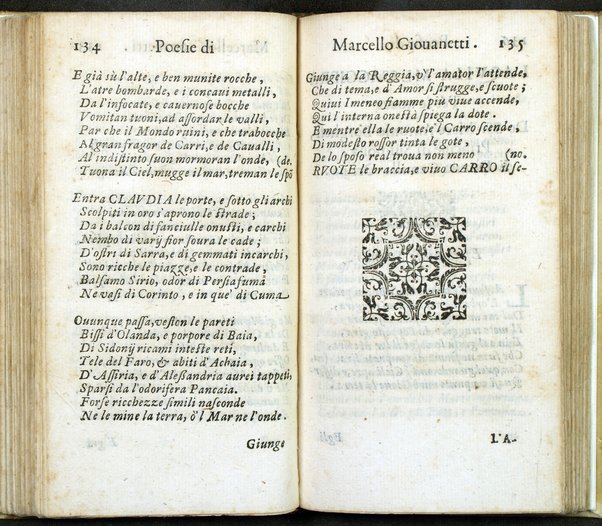 134 Poesie di
E già sù l'alte, e ben munite rocche,
L'atre bombarde, e i concaui metalli,
Da l'infocate, e cauernose bocche
Vomitan tuoni, ad assordar le valli,
Par che il Mondo ruini, e che trabocche
Al gran fragor de Carri, e de Caualli,
Al indistinto suon mormoran l'onde, (de.
Tuona il Ciel, mugge il mar, treman le spō
Entra CLAVDIA le porte, e sotto gli archi
Scolpiti in oro s'aprono le strade;
Da i balcon di fanciulle onusti, e carchi
Nembo di varij fior soura le cade;
D'ostri di Sarra, e di gemmati incarchi,
Sono ricche le piagge, e le contrade,
Balsamo Sirio, odor di Persia fuma
Ne vasi di Corinto, e in que' di Cuma
Ouunque passa, veston le pareti
Bissi d'Olanda, e porpore di Baia,
Di Sidonij ricami inteste reti,
Tele del Faro, & abiti d'Achaia,
D'Assiria, e d'Alessandria aurei tappeti,
Sparsi da l'odorifera Pancaia.
Forse ricchezze simili nasconde
Ne le mine la terra, ò l Mar ne l'onde.
Giunge
Marcello Giouanetti. 135
Giunge a la Reggia, v' l'amator l'attende,
Che di tema, e d'Amor si strugge, e scuote;
Quiui Imeneo fiamme più viue accende,
Qui l'interna onestà spiega la dote.
E mentre ella le ruote, e'l Carro scende,
Di modesto rossor tinta le gote,
De lo sposo real troua non meno (no.
RVOTE le braccia, e viuo CARRO il se-
L'A-